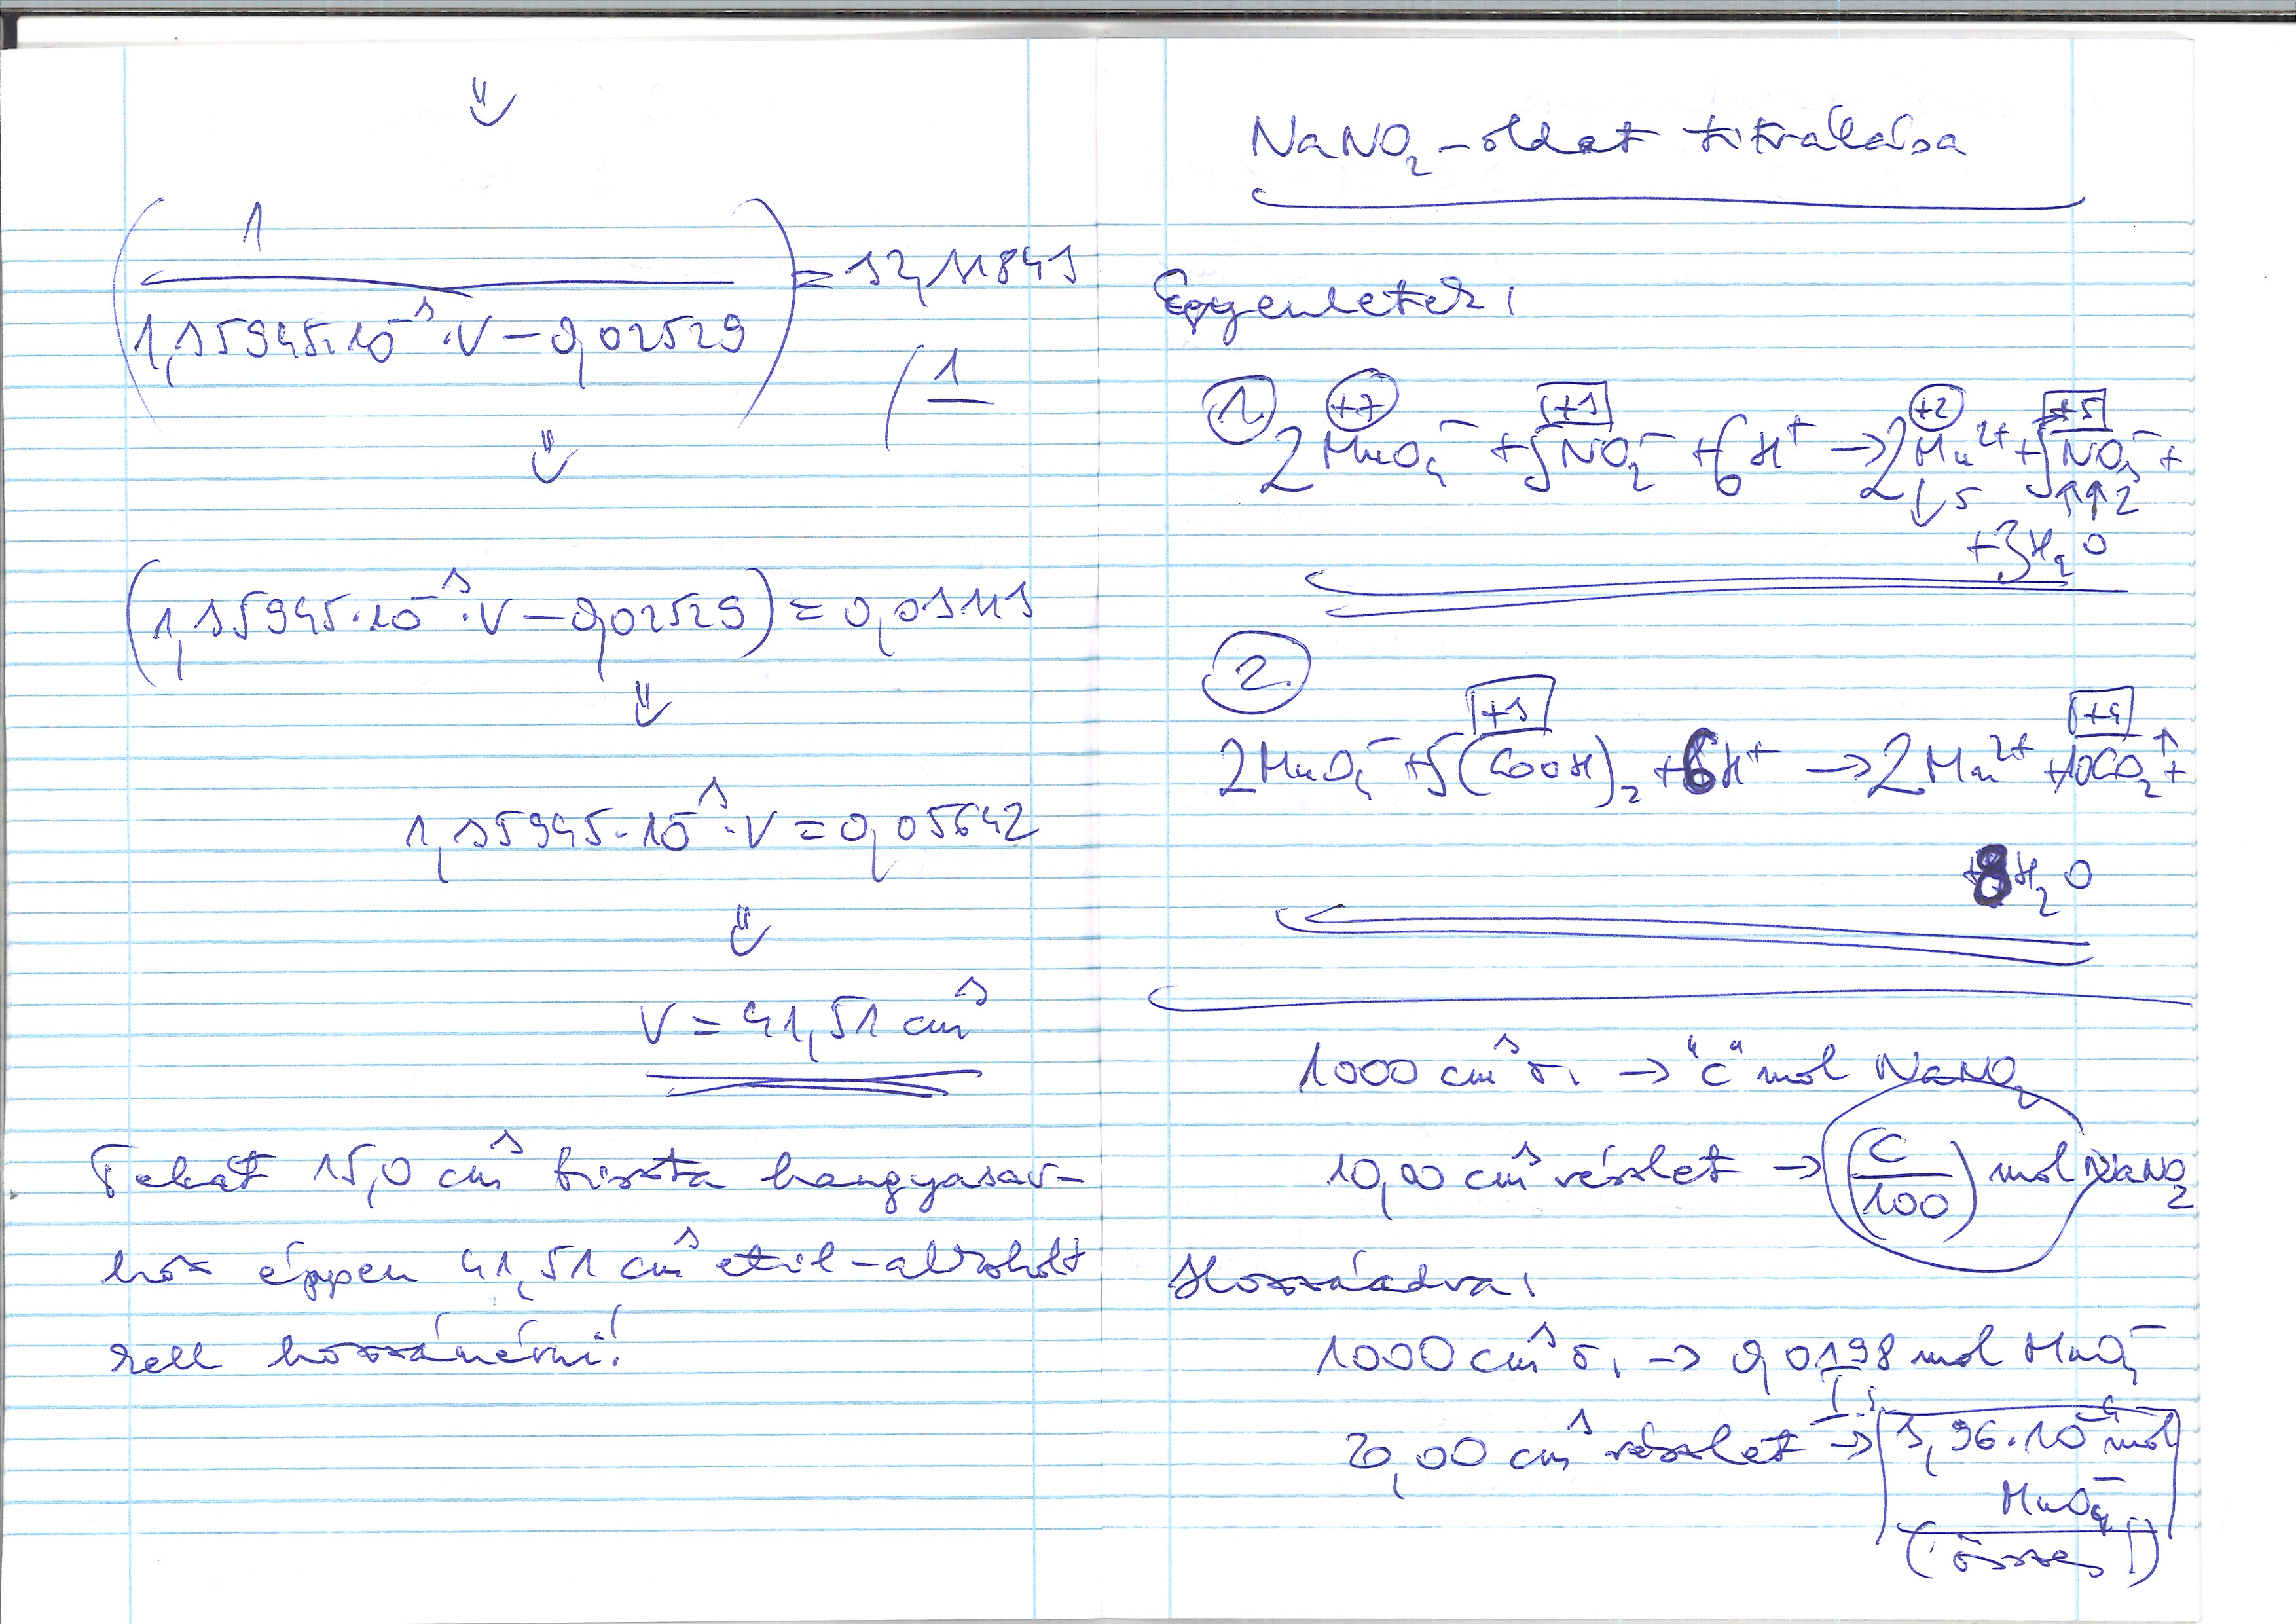 ⇓
(1 / (1,35945·10⁻³·V − 0,02529)) = 32,11843
( 1
⇓
(1,35945·10⁻³·V − 0,02529) = 0,03113
⇓
1,35945·10⁻³·V = 0,05642
⇓
V = 41,51 cm³
Tehát 15,0 cm³ tiszta hangyasav-
hoz éppen 41,51 cm³ etil-alkoholt
kell hozzámérni!
NaNO₂-oldat titrálása
Egyenletek:
1. +7 +3 +2 +5
2MnO₄⁻ + 5NO₂⁻ + 6H⁺ → 2Mn²⁺ + 5NO₃⁻ +
↓5 ↑↑2
+3H₂O
2.
+3 +4
2MnO₄⁻ + 5(COOH)₂ + 6H⁺ → 2Mn²⁺ + 10CO₂↑ +
+8H₂O
1000 cm³ o. → "c" mol NaNO₂
10,00 cm³ részlet → (c/100) mol NaNO₂
Hozzáadva:
1000 cm³ o. → 0,0198 mol MnO₄⁻
20,00 cm³ részlet → 3,96·10⁻⁴ mol
MnO₄⁻
(összes!)